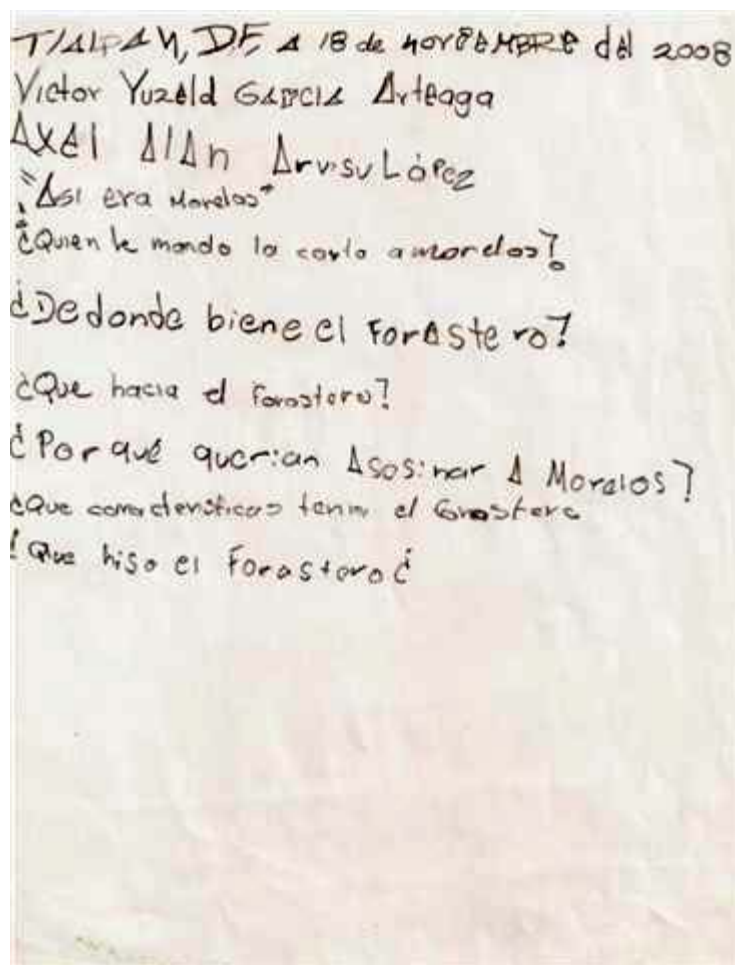 TlALPAN, DF, A 18 de novIEMBRE del 2008
Victor Yuzeld GARCIA Arteaga
AXEl AlAn Arvisu López
"Asi era Morelos"
¿Quien le mando la carta a morelos?
¿De donde biene el ForAstero?
¿Que hacia el forastero?
¿Por qué querian Asesinar A Morelos?
¿Que caracteristicas tenia el forastero
¿Que hiso el Forastero¿